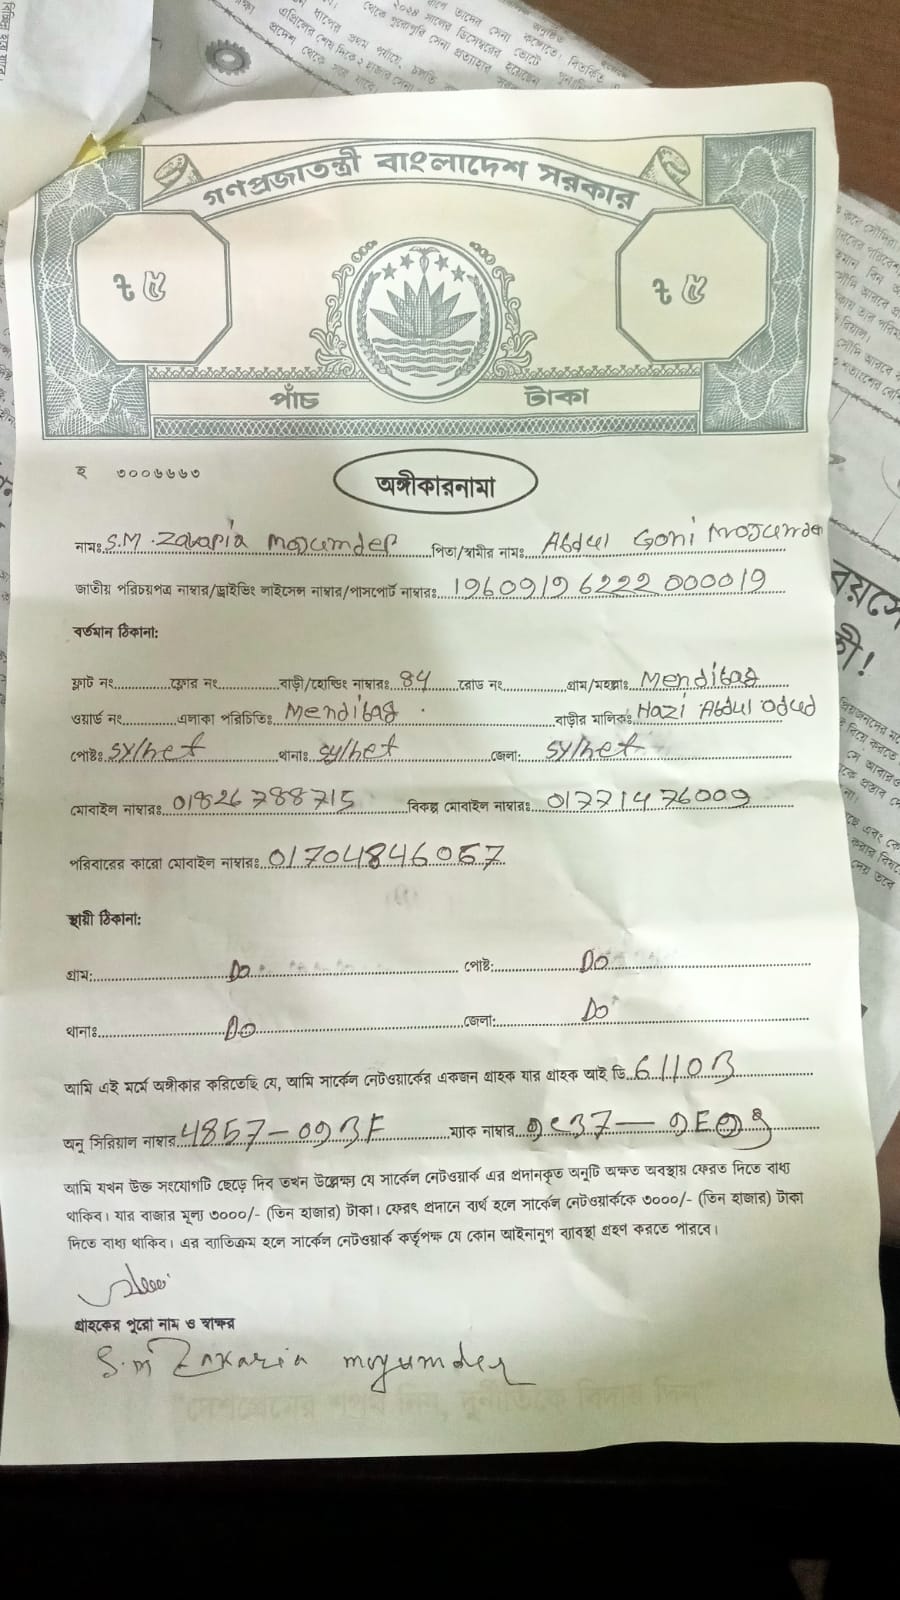 গণপ্রজাতন্ত্রী বাংলাদেশ সরকার
৳ ৫ ৳ ৫
পাঁচ টাকা
হ ৩০০৬৬৬৩
অঙ্গীকারনামা
নামঃ S.M. Zakaria Mojumder পিতা/স্বামীর নামঃ Abdul Goni Mojumder
জাতীয় পরিচয়পত্র নাম্বার/ড্রাইভিং লাইসেন্স নাম্বার/পাসপোর্ট নাম্বারঃ 19609196222000019
বর্তমান ঠিকানা:
ফ্লাট নং ফ্লোর নং বাড়ী/হোল্ডিং নাম্বারঃ 84 রোড নং গ্রাম/মহল্লাঃ Mendibag
ওয়ার্ড নং এলাকা পরিচিতিঃ Mendibag বাড়ীর মালিকঃ Hazi Abdul Odud
পোষ্টঃ Sylhet থানাঃ Sylhet জেলা: Sylhet
মোবাইল নাম্বারঃ 01826788715 বিকল্প মোবাইল নাম্বারঃ 01771476009
পরিবারের কারো মোবাইল নাম্বারঃ 01704846067
স্থায়ী ঠিকানা:
গ্রাম: Do পোষ্ট: Do
থানাঃ Do জেলা: Do
আমি এই মর্মে অঙ্গীকার করিতেছি যে, আমি সার্কেল নেটওয়ার্কের একজন গ্রাহক যার গ্রাহক আই ডি 6110B
অনু সিরিয়াল নাম্বার 4857-09BF ম্যাক নাম্বার
আমি যখন উক্ত সংযোগটি ছেড়ে দিব তখন উল্লেক্ষ্য যে সার্কেল নেটওয়ার্ক এর প্রদানকৃত অনুটি অক্ষত অবস্থায় ফেরত দিতে বাধ্য
থাকিব। যার বাজার মূল্য ৩০০০/- (তিন হাজার) টাকা। ফেরৎ প্রদানে ব্যর্থ হলে সার্কেল নেটওয়ার্ককে ৩০০০/- (তিন হাজার) টাকা
দিতে বাধ্য থাকিব। এর ব্যতিক্রম হলে সার্কেল নেটওয়ার্ক কর্তৃপক্ষ যে কোন আইনানুগ ব্যাবস্থা গ্রহণ করতে পারবে।
গ্রাহকের পুরো নাম ও স্বাক্ষর
S.M Zakaria mojumder
"দেশপ্রেমের শপথ নিন, দুর্নীতিকে বিদায় দিন"